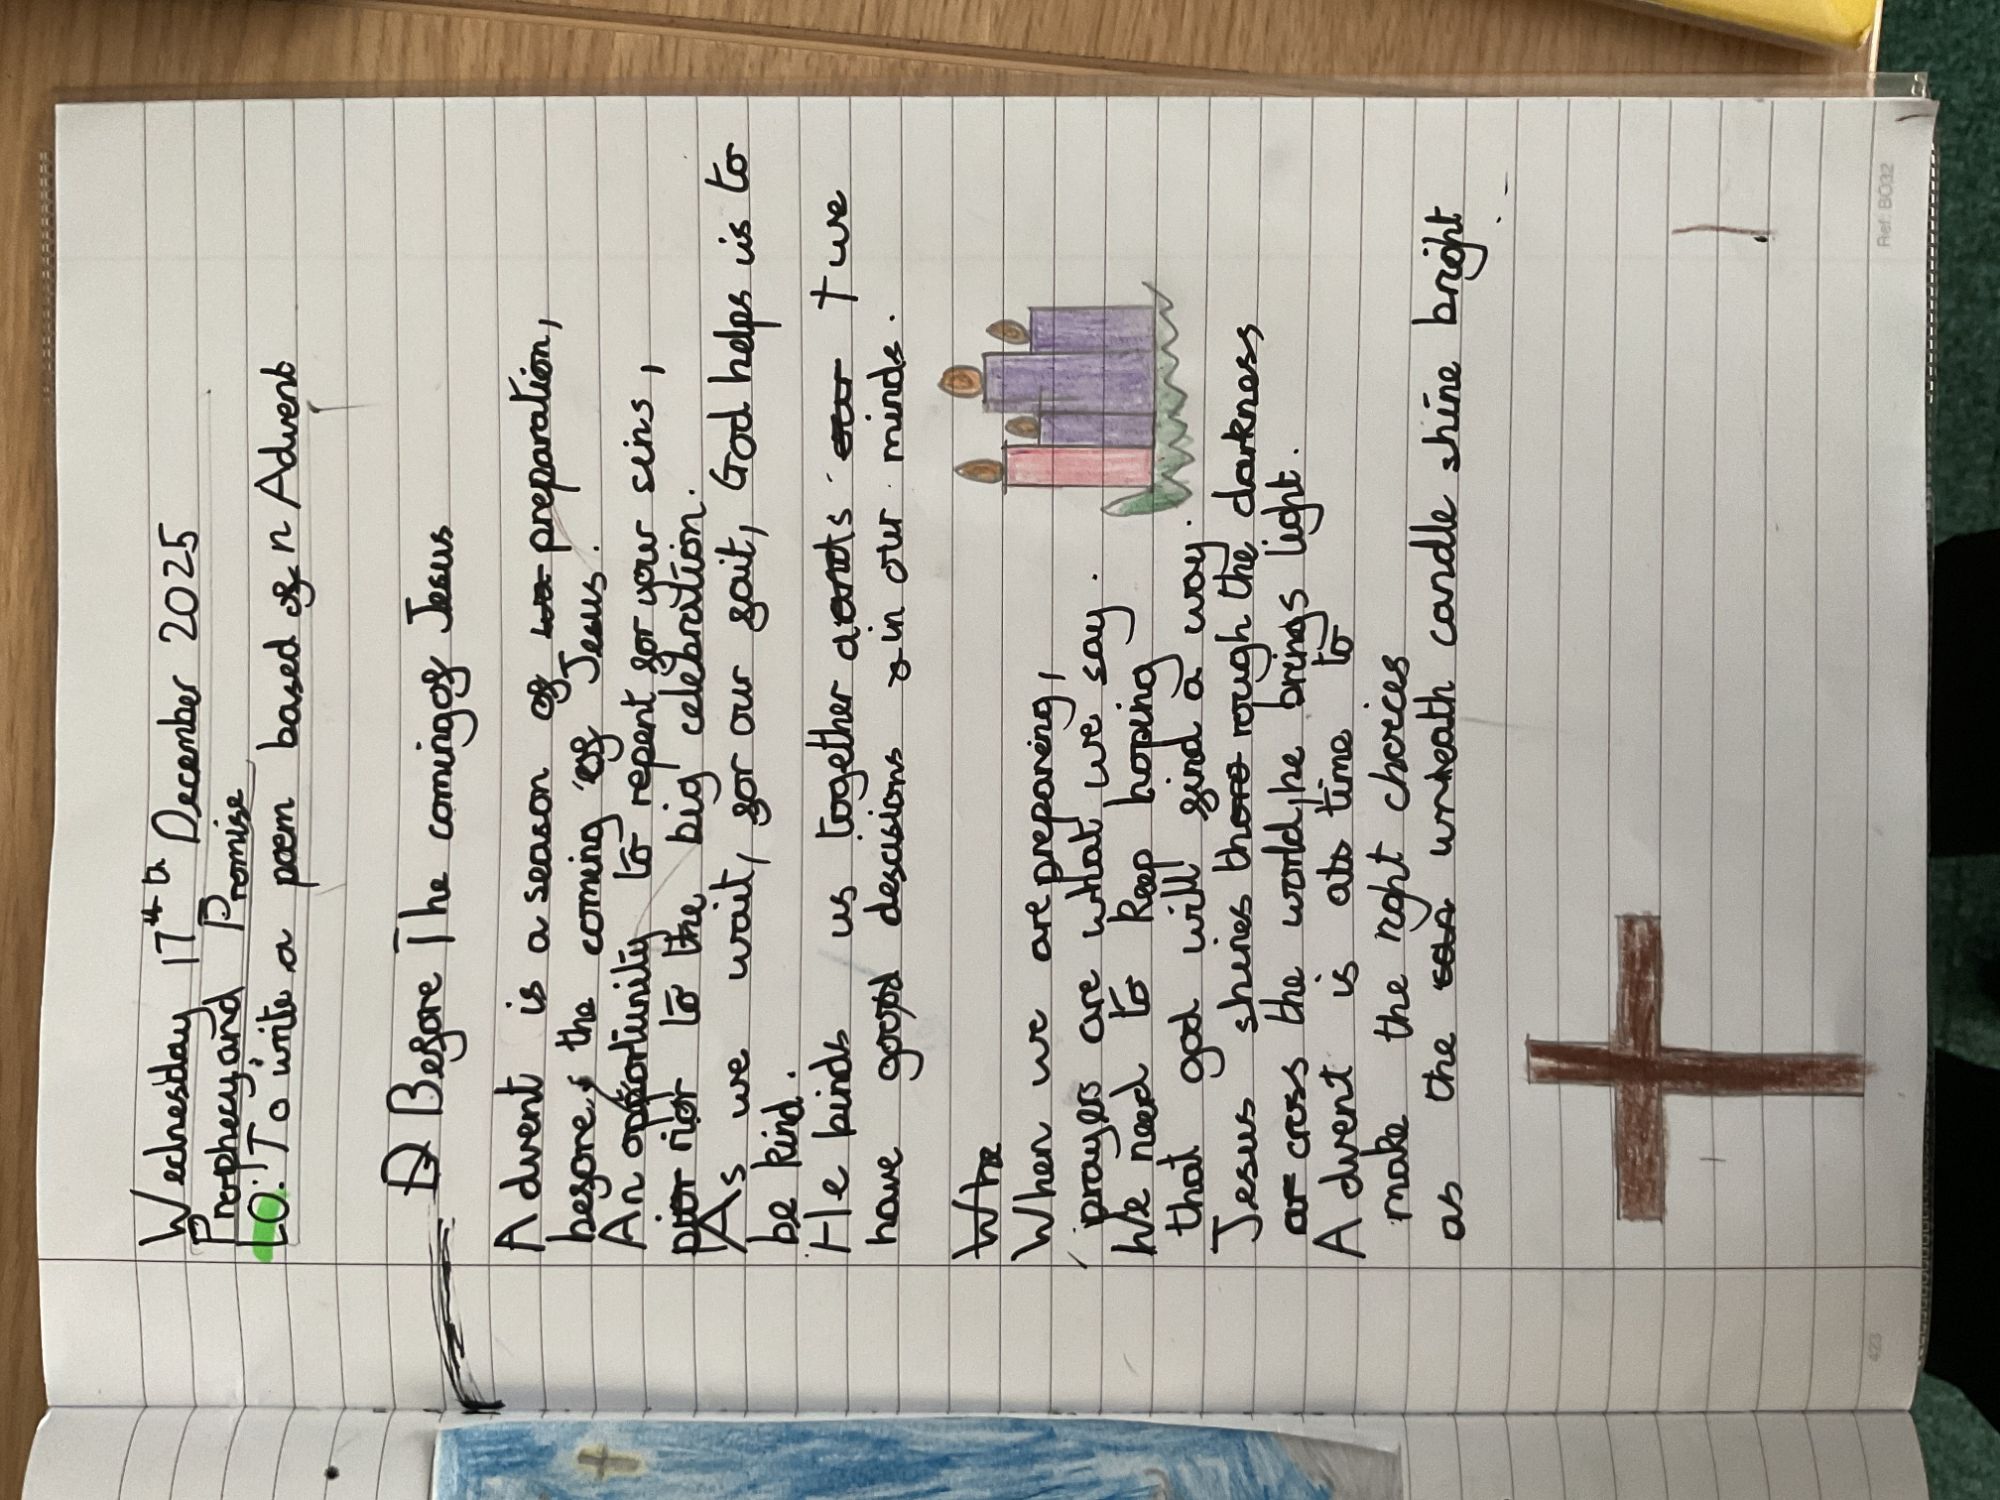 Wednesday 17th December 2025
Prophecy and Promise
LO: To write a poem based of n Advent
Before The coming of Jesus
Advent is a season of preparation,
before, the coming of Jesus.
An opportunity to repent for your sins,
to the big celebration.
As we wait, for our fait, God helps is to
be kind.
He binds us together we
have good descisions in our minds.
Whe
When we are preparing,
prayers are what we say.
We need to keep hoping
that god will find a way.
Jesus shines rough the darkness,
cross the world, he brings light.
Advent is time to
make the right choices
as the wreath candle shine bright
Ref: BO32
423